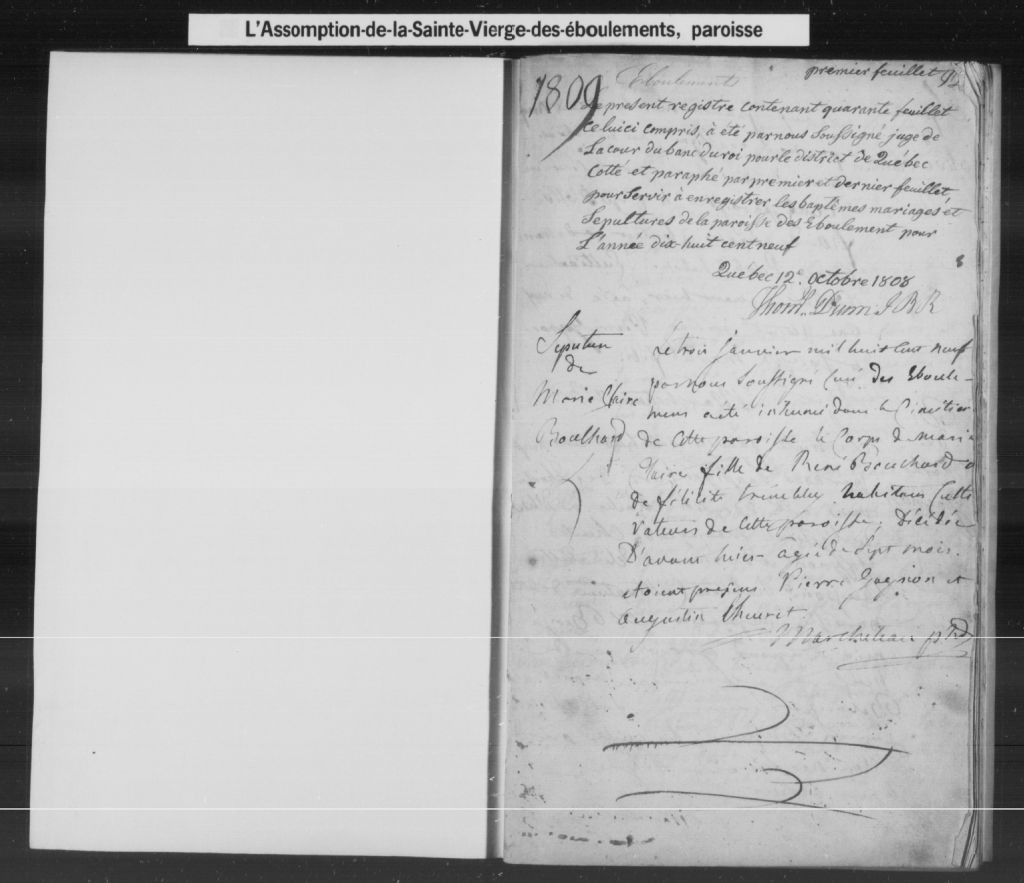 L'Assomption-de-la-Sainte-Vierge-des-éboulements, paroisse
premier feuillet
1809
Eboulements
Le present registre contenant quarante feuillet
celuici compris, à été par nous soussigné juge de
La cour du banc du roi pour le district de Québec
Cotté et paraphé par premier et dernier feuillet,
pour servir à enregistrer les baptêmes mariages et
Sepultures de la paroisse des Eboulement pour
L'année dix-huit cent neuf
Québec 12e. Octobre 1808
Dunn J B R
Sepulture
de
Marie Claire
Bouchard
Le trois janvier mil huit cent neuf
par nous soussigné Curé des Eboule-
mens a été inhumé dans le Cimetier
de Cette paroisse le Corps de marie
Claire fille de René Bouchard &
de félicité tremblay habitans Culti
vateurs de Cette paroisse, Décédée
D'avant hier agée de Sept mois.
etoient presens Pierre Gagnon et
augustin
ptre